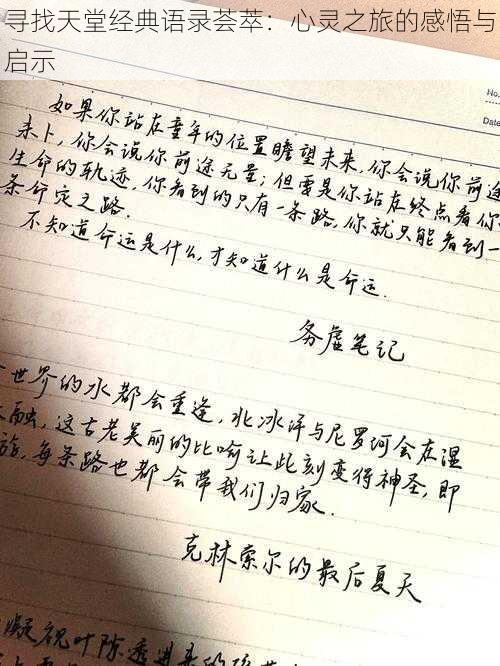 寻找天堂经典语录荟萃：心灵之旅的感悟与
启示
No.
Date
如果你站在童年的位置瞻望未来，你会说你前途
未卜，你会说你前途无量；但要是你站在终点看你
生命的轨迹，你看到的只有一条路，你就只能看到一
条命定之路．
不知道命运是什么，才知道什么是命运．
务虚笔记
世界的水都会重逢，北冰洋与尼罗河会在湿
融，这古老美丽的比喻让此刻变得神圣，即
旅，每条路也都会带我们归家．
克林索尔的最后夏天
凝视叶隙透进来的